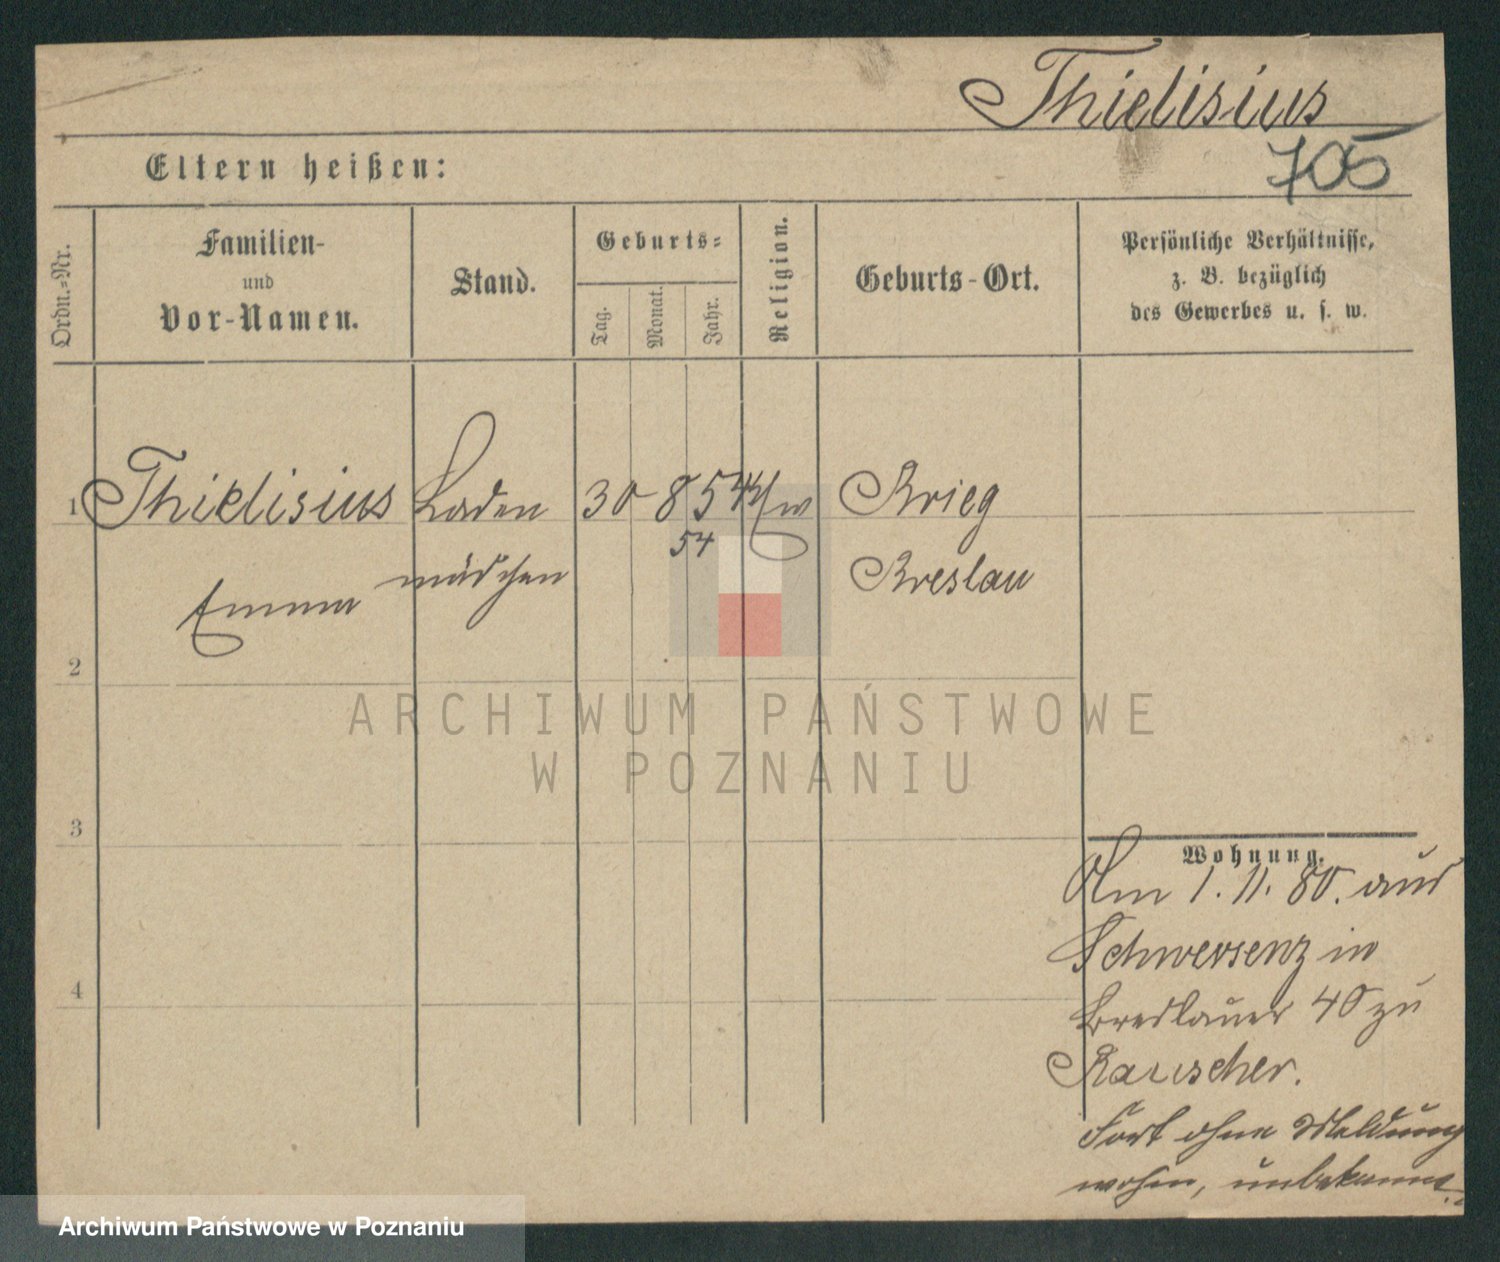 Thielisius
705
Eltern heißen:
Ordn.=Nr.
Familien-
und
Vor-Namen.
Stand.
Geburts=
Tag.
Monat.
Jahr.
Religion.
Geburts-Ort.
Persönliche Verhältnisse,
z. B. bezüglich
des Gewerbes u. s. w.
1 Thielisius Laden 30 8 54 Brieg
54
Emma mädchen Breslau
2
3
4
Wohnung.
Am 1. 11. 80. aus
Schwersenz in
Breslauer 40 zu
Rauscher.
Fort ohne Meldung
wohin, unbekannt.
ARCHIWUM PAŃSTWOWE
W POZNANIU
Archiwum Państwowe w Poznaniu